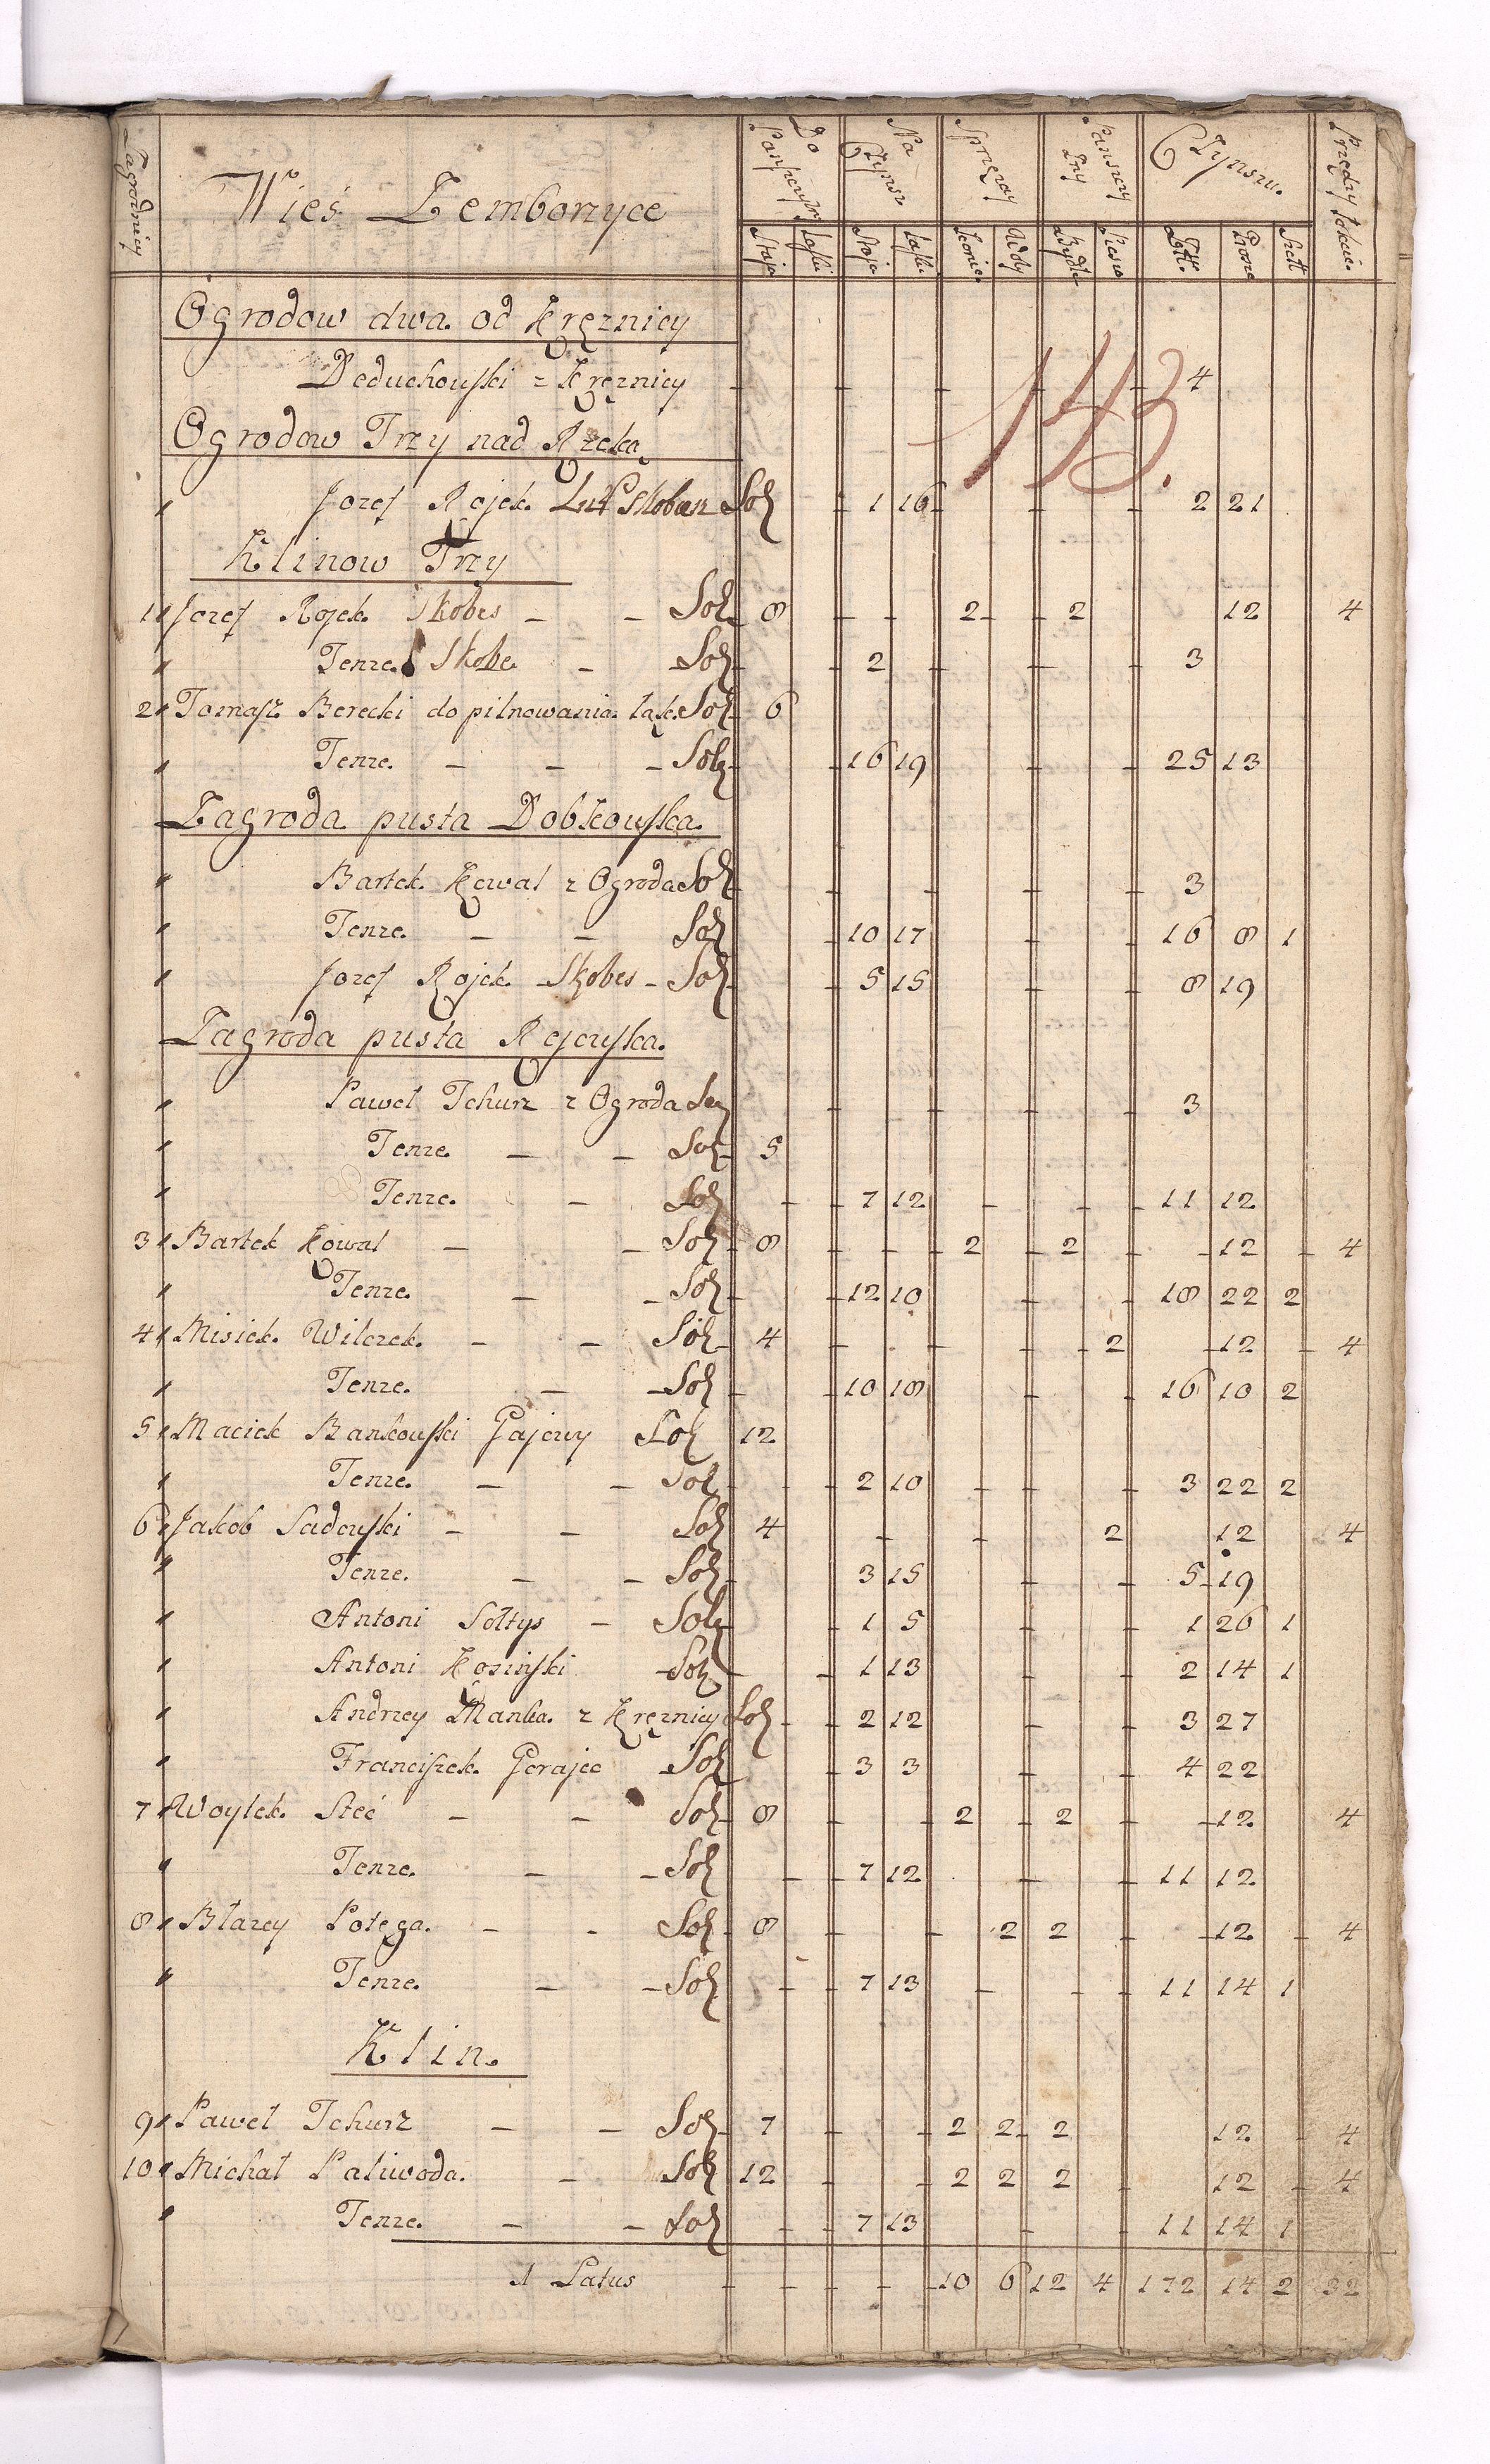 Zagrodnicy Wieś Zemborzyce Do Panszczyzny Na Czynsz Sprzęzay Panszczyzny Czynszu. Przędzy łokcie.
Staje Laski Staje Laski Konie Woły Bydłe Pieszo Złt. Grosze Szelt
Ogrodow dwa od Kręznicy
Deduchowski z Kręznicy - - - - - 4
143.
Ogrodow Trzy nad Rzeką
" Jozef Rojek Skobes Soł - 1 16 - - - 2 21
Klinow Trzy
1 " Jozef Rojek Skobes - - Soł 8 - - 2 - 2 12 4
" Tenze Skobe - Soł - 2 - - - 3
2 " Tomasz Berecki do pilnowania łąk Soł 6
" Tenze - - - Soł - 16 19 - - 25 13
Zagroda pusta Dobkowska
" Bartek Kowal z Ogroda Soł - - - - 3
" Tenze - - Soł - 10 17 - - 16 8 1
" Jozef Rojek Skobes - Soł - 5 15 - - 8 19
Zagroda pusta Rojczyska
" Paweł Tchurz z Ogroda Soł - - - - 3
" Tenze - - Soł 5
" Tenze - Soł - - 7 12 - - - 11 12
3 " Bartek Kowal - - Soł 8 - - - 2 - 2 - - 12 - 4
" Tenze - - Soł - - 12 10 - - 18 22 2
4 " Misiek Wilczek - - Soł 4 - - - - - 2 - 12 - 4
" Tenze - - Soł - - 10 18 - - 16 10 2
5 " Maciek Bankowski Gajowy Soł 12
" Tenze - - Soł - - - 2 10 - - - 3 22 2
6 " Jakob Sadowski - - Soł 4 - - 2 12 4
" Tenze - - Soł 3 15 - - 5 19
" Antoni Sołtys - Soł - 1 5 - - 1 26 1
" Antoni Kosinski - Soł - - 1 13 - - 2 14 1
" Andrzey Manka z Kręznicy Soł - - 2 12 - - 3 27
" Franciszek Gorajec Soł - 3 3 - - 4 22
7 " Woytek Steć - - Soł 8 - - 2 - 2 - - 12 4
" Tenze - - Soł - - 7 12 - - 11 12
8 " Błazey Potęga - - Soł 8 - - 2 2 - - 12 - 4
" Tenze - - Soł - - 7 13 - - - 11 14 1
Klin.
9 " Paweł Tchurz - - Soł 7 - - 2 2 2 12 - 4
10 " Michał Paliwoda - Soł 12 - - 2 2 2 - 12 - 4
" Tenze - - Soł - - 7 13 - - 11 14 1
1 Latus - - - - 10 6 12 4 172 14 2 32